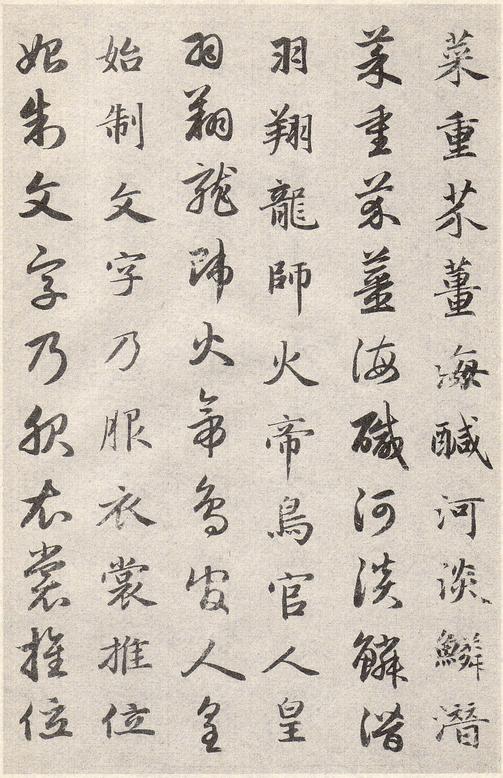 菜重芥薑海鹹河淡鱗潛
菜重芥薑海醎河淡鱗潛
羽翔龍師火帝鳥官人皇
羽翔龍師火帝鳥官人皇
始制文字乃服衣裳推位
始制文字乃服衣裳推位